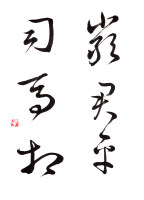 嚴君平
司馬相